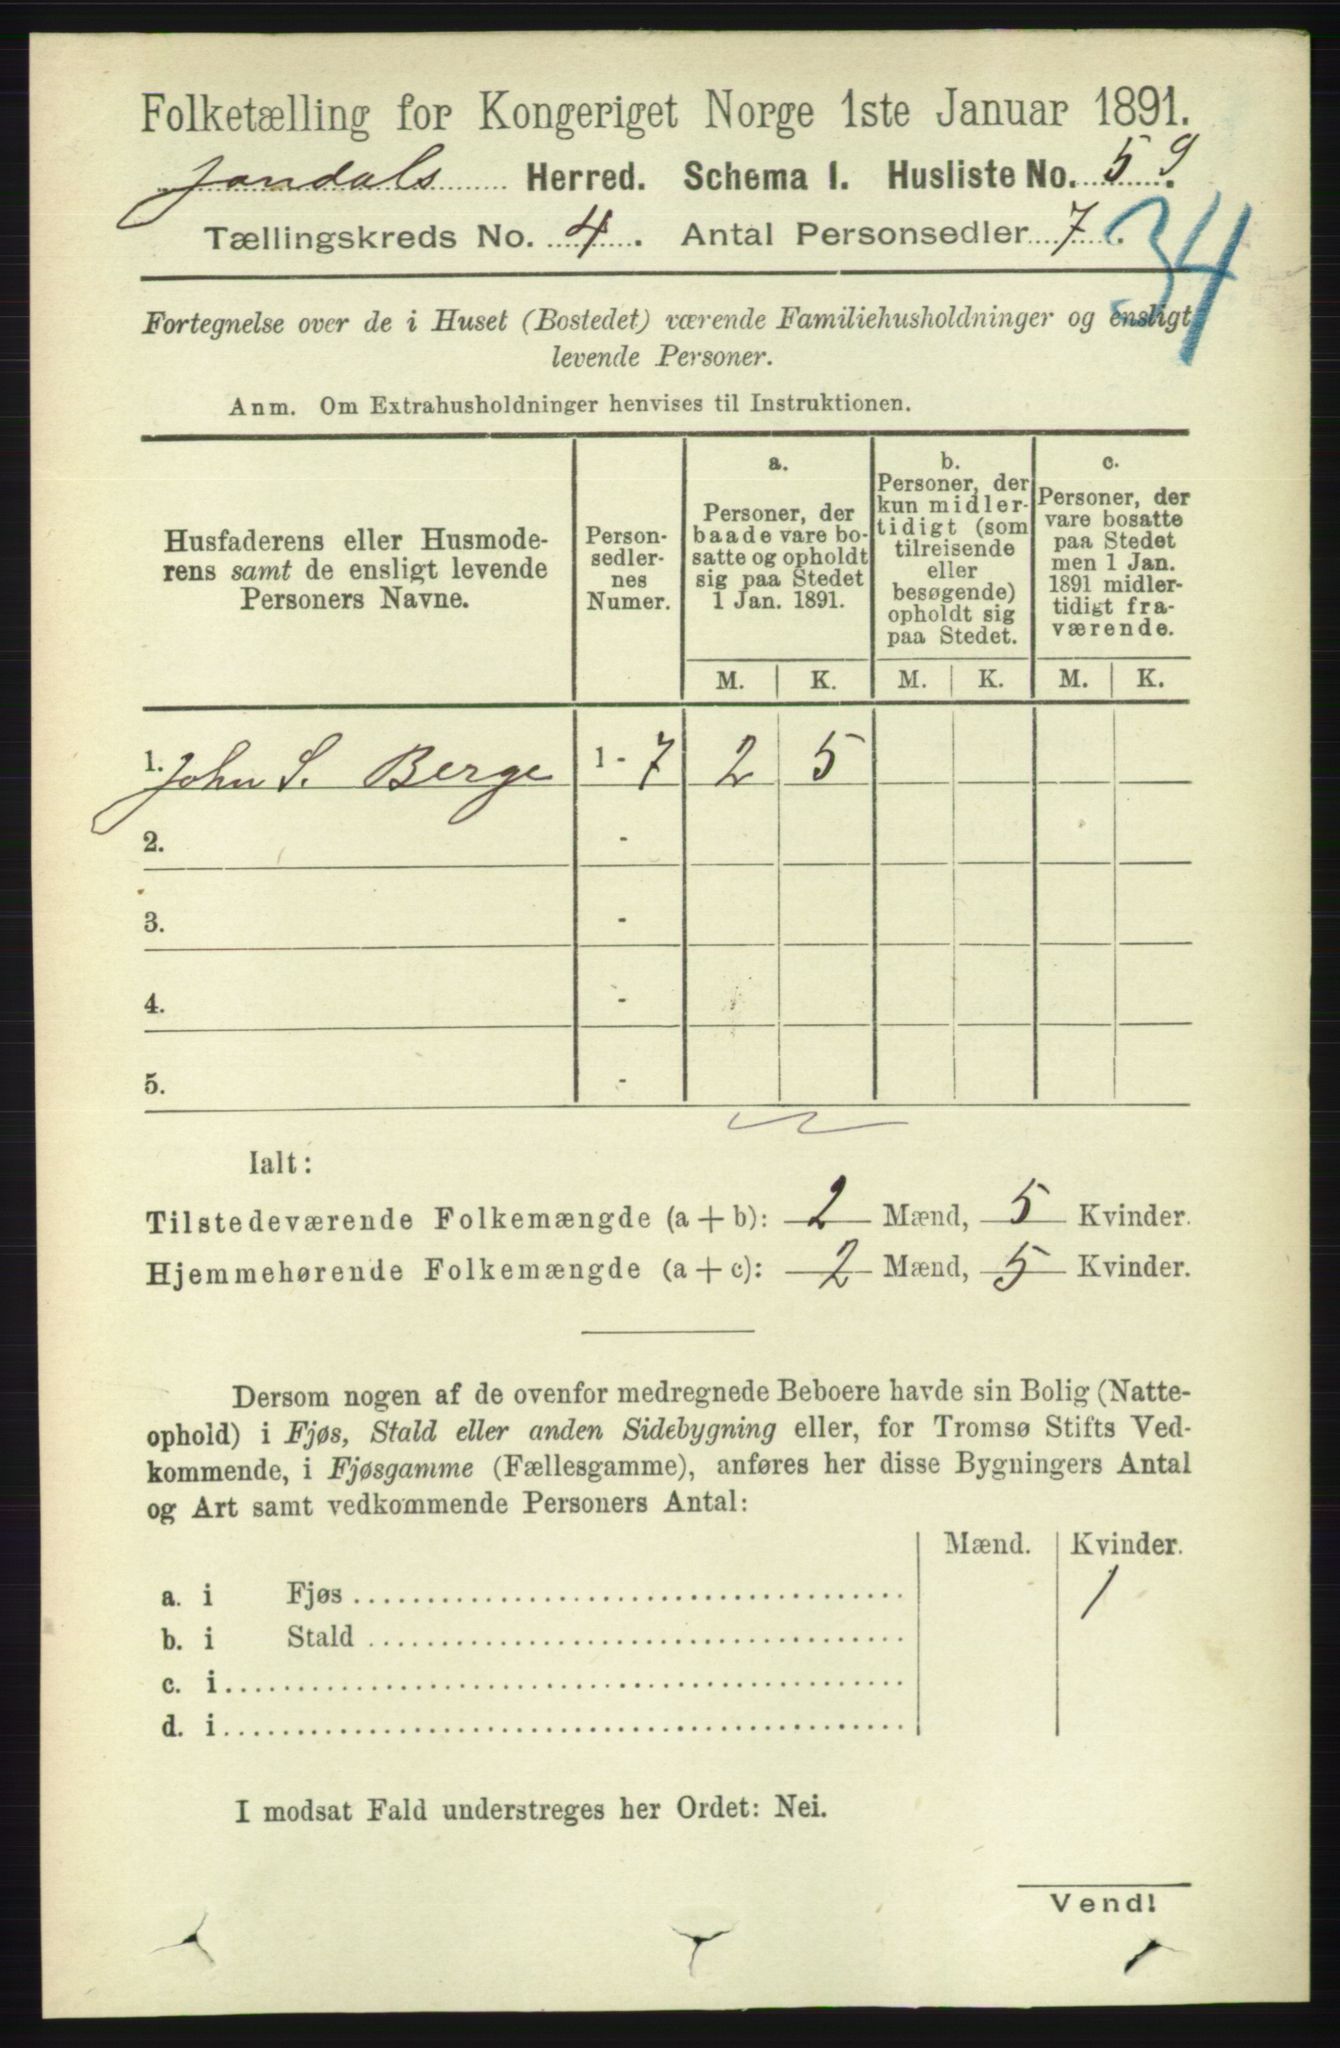 Folketælling for Kongeriget Norge 1ste Januar 1891.
Jondals Herred. Schema 1. Husliste No. 59.
Tællingskreds No. 4. Antal Personsedler 7.
34
Fortegnelse over de i Huset (Bostedet) værende Familiehusholdninger og ensligt
levende Personer.
Anm. Om Extrahusholdninger henvises til Instruktionen.
Husfaderens eller Husmode-
rens samt de ensligt levende
Personers Navne.
Person-
sedler-
nes
Numer.
a.
Personer, der
baade vare bo-
satte og opholdt
sig paa Stedet
1 Jan. 1891.
b.
Personer, der
kun midler-
tidigt (som
tilreisende
eller
besøgende)
opholdt sig
paa Stedet.
c.
Personer, der
vare bosatte
paa Stedet
men 1 Jan.
1891 midler-
tidigt fra-
værende.
M. K. M. K. M. K.
1. John S. Berge 1 - 7 2 5
2. -
3. -
4. -
5. -
Ialt:
Tilstedeværende Folkemængde (a + b): 2 Mænd, 5 Kvinder.
Hjemmehørende Folkemængde (a + c): 2 Mænd, 5 Kvinder.
Dersom nogen af de ovenfor medregnede Beboere havde sin Bolig (Natte-
ophold) i Fjøs, Stald eller anden Sidebygning eller, for Tromsø Stifts Ved-
kommende, i Fjøsgamme (Fællesgamme), anføres her disse Bygningers Antal
og Art samt vedkommende Personers Antal:
Mænd. Kvinder.
a. i Fjøs 1
b. i Stald
c. i
d. i
I modsat Fald understreges her Ordet: Nei.
Vend!